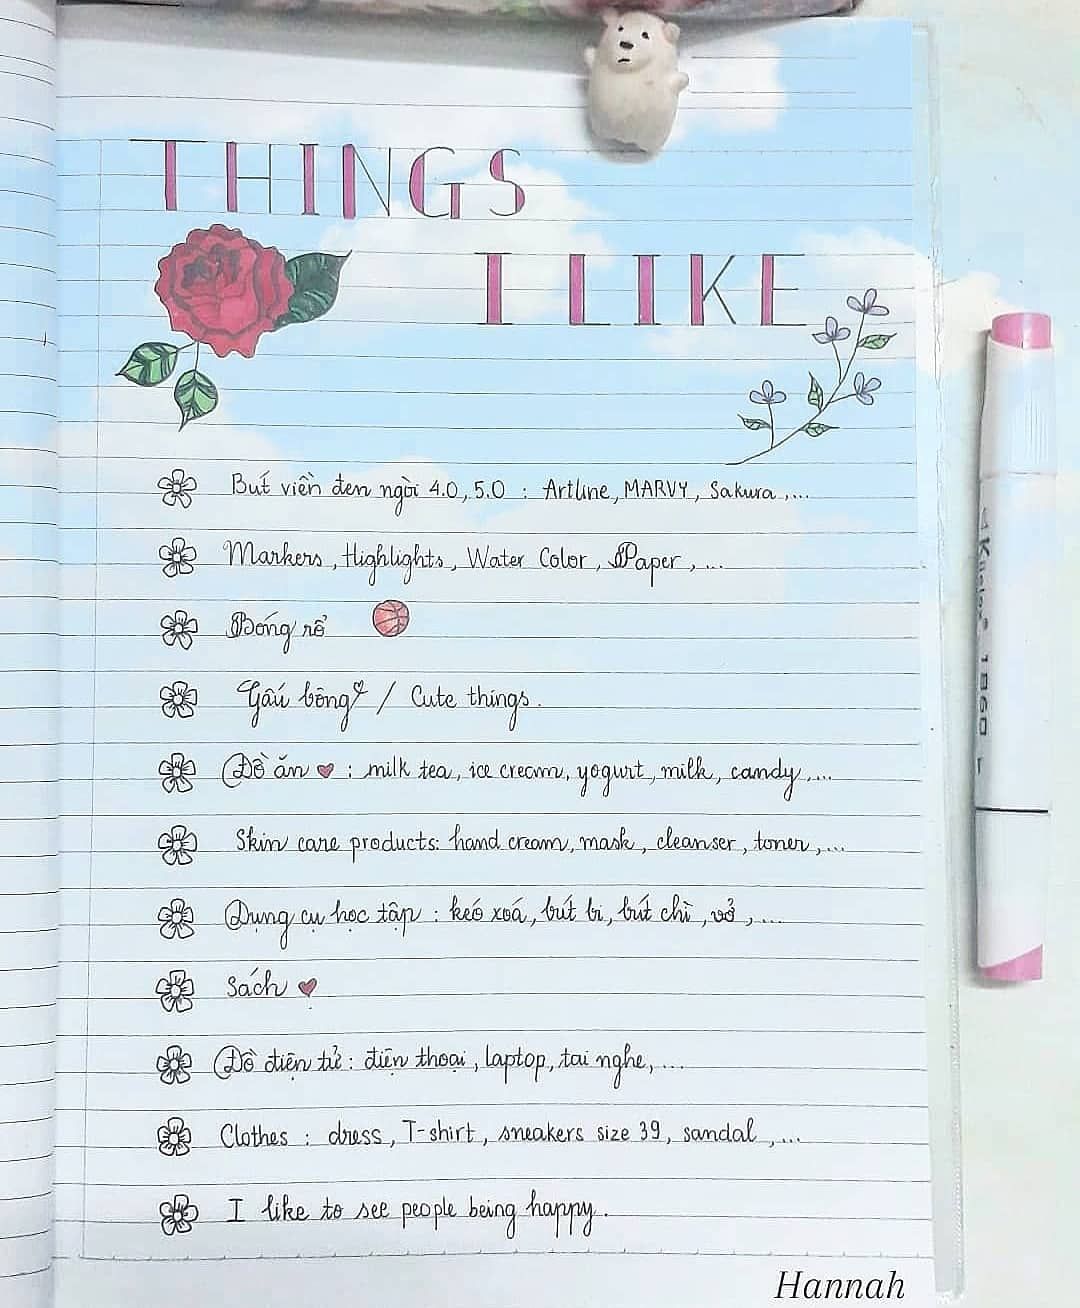 THINGS
I LIKE
Bút viền đen ngòi 4.0, 5.0 : Artline, MARVY, Sakura,...
Markers, Highlights, Water Color, Paper,...
Bóng rổ
Gấu bông / Cute things.
Đồ ăn : milk tea, ice cream, yogurt, milk, candy,...
Skin care products: hand cream, mask, cleanser, toner,...
Dụng cụ học tập : kéo xoá, bút bi, bút chì, vở,...
Sách
Đồ điện tử : điện thoại, laptop, tai nghe,...
Clothes : dress, T-shirt, sneakers size 39, sandal,...
I like to see people being happy.
Hannah